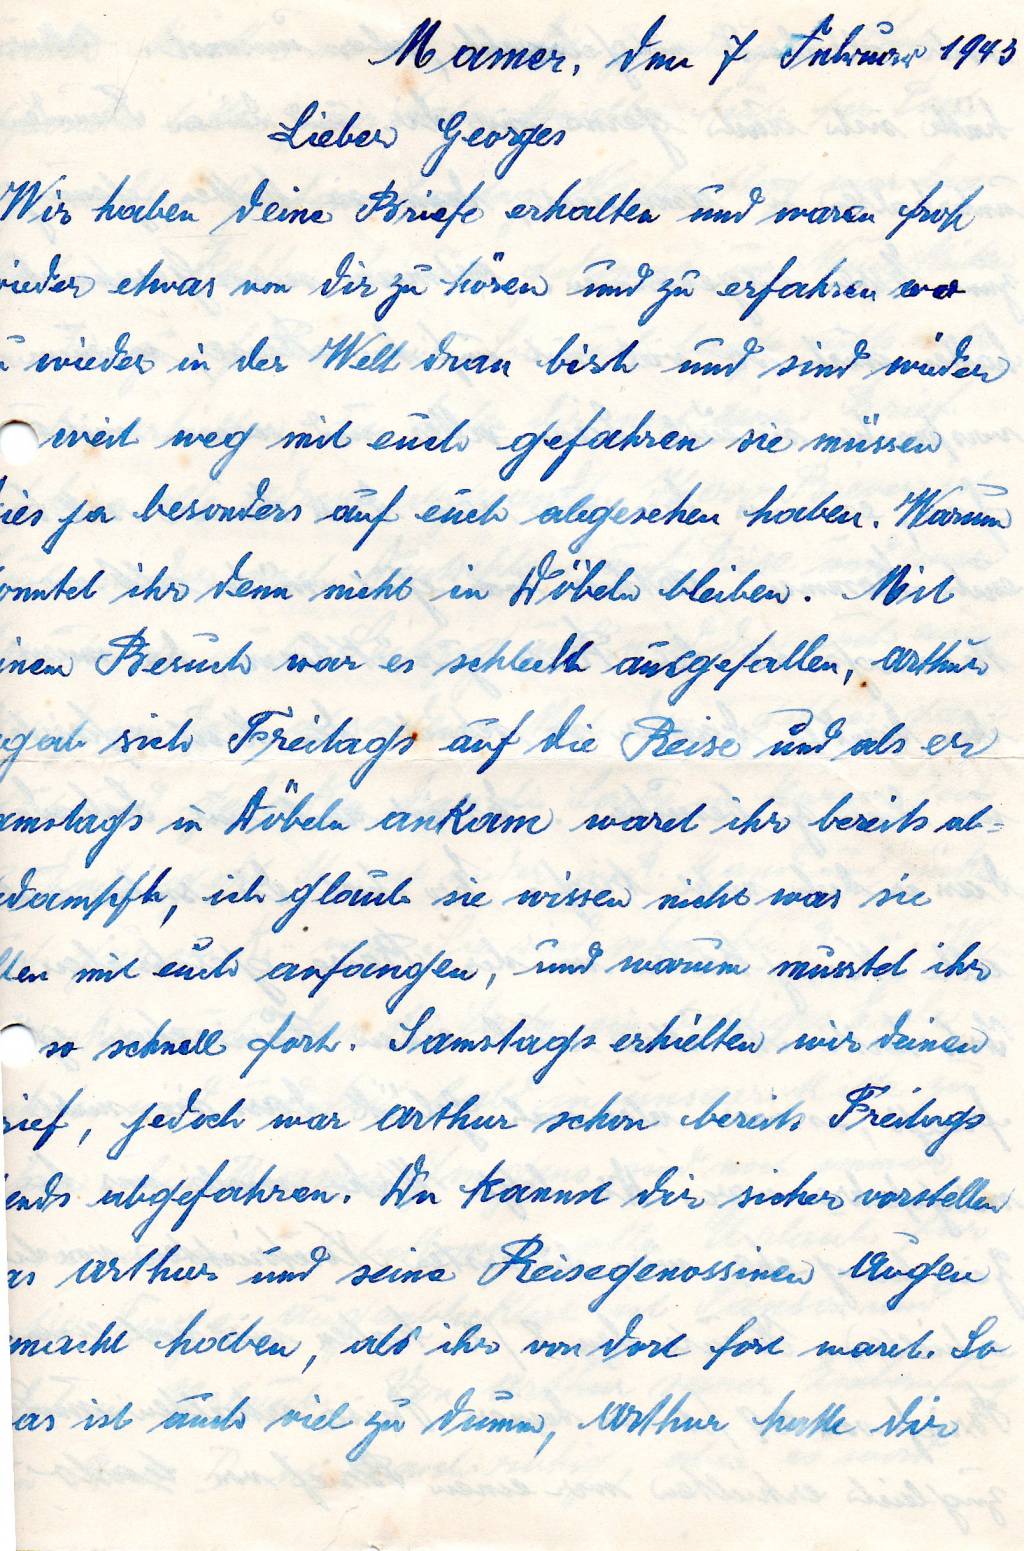 Mamer, den 7 Februar 1943
Lieber Georges
Wir haben deine Briefe erhalten und waren froh
wieder etwas von dir zu hören und zu erfahren wo
u wieder in der Welt dran bist und sind wieder
weit weg mit euch gefahren sie müssen
ies ja besonders auf euch abgesehen haben. Warum
onntet ihr denn nicht in Döbeln bleiben. Mit
inem Besuch war es schlecht ausgefallen, Arthur
gab sich Freitags auf die Reise und als er
amstags in Döbeln ankam waret ihr bereits ab-
dampft, ich glaub sie wissen nicht was sie
llen mit euch anfangen, und warum musstet ihr
so schnell fort. Samstags erhielten wir deinen
rief, jedoch war Arthur schon bereits Freitags
ends abgefahren. Du kannst dir sicher vorstellen
as Arthur und seine Reisegenossinen Augen
macht haben, als ihr von dort fort waret. So
as ist auch viel zu dumm, Arthur hatte dir